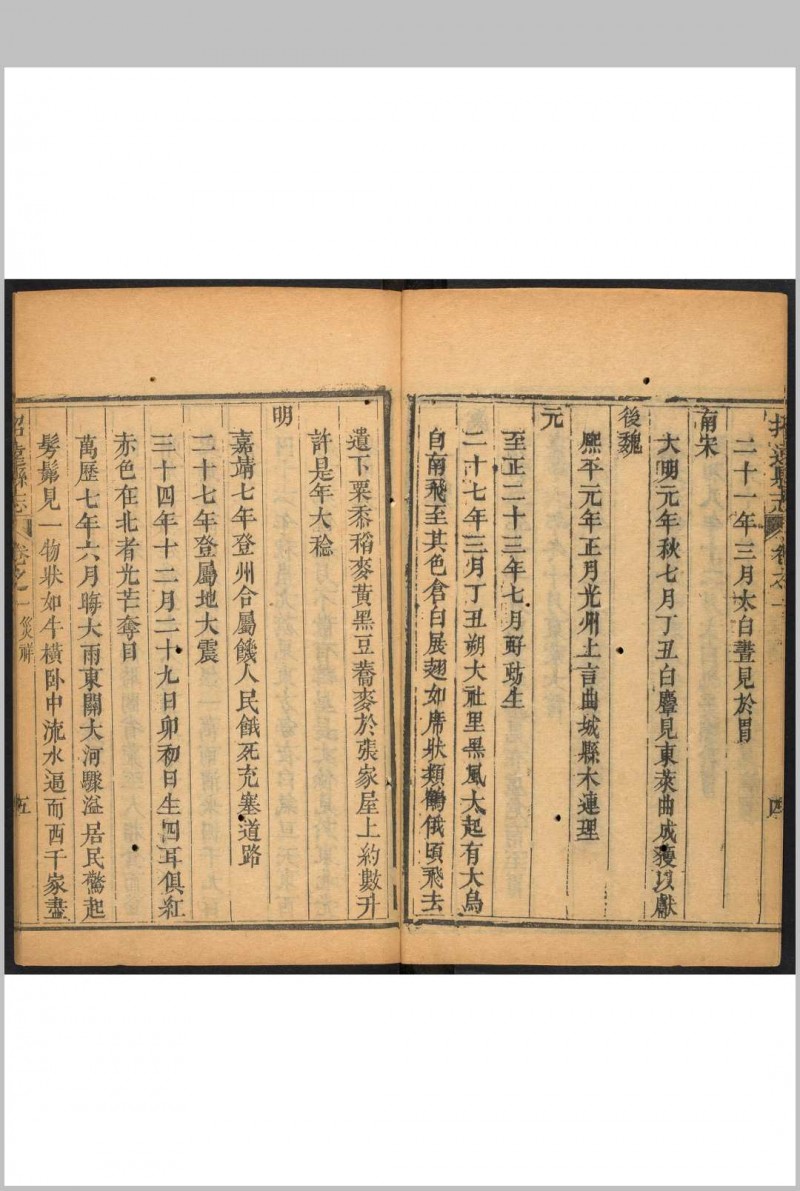 招遠縣志 卷之一 四
二十一年三月太白晝見於胃
南宋
大明元年秋七月丁丑白麞見東萊曲成獲以獻
後魏
熙平元年正月光州上言曲城縣木連理
元
至正二十三年七月蚜蚄生
二十七年三月丁丑朔大社里黑風大起有大鳥
自南飛至其色倉白展翅如席狀類鶴俄頃飛去
遺下粟黍稻麥黃黑豆蕎麥於張家屋上約數升
許是年大稔
明
嘉靖七年登州合屬饑人民餓死充塞道路
二十七年登屬地大震
三十四年十二月二十九日卯初日生四耳俱紅
赤色在北者光芒奪目
萬歷七年六月晦大雨東關大河驟溢居民驚起
髣髴見一物狀如牛橫卧中流水逼而西千家盡
招遠縣志 卷之一 災祥 五